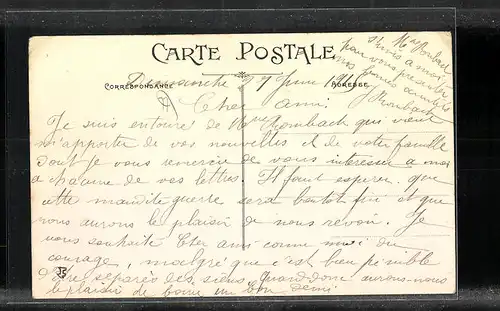 CARTE POSTALE
CORRESPONDANCE
ADRESSE
Mme Rombach
s'unis à moi
pour vous présenter
nos bonnes amitiés
Rombach
Dimanche 27 Juin 1915
Cher ami
Je suis entouré de Mme Rombach qui vient
m'apporter de vos nouvelles et de votre famille
dont je vous remercie de vous intéresser a moi
a chacune de vos lettres Il faut esperer que
cette maudite guerre sera bientot fini et que
nous aurons le plaisir de nous revoir. Je
vous souhaite Cher ami comme moi du
courage, malgré que c'est bien penible
d'être separés des siens, quand donc aurons-nous
le plaisir de boire un bon demi